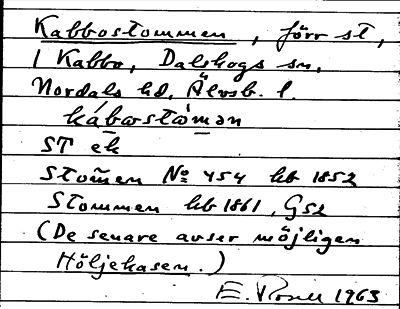 Kabbostommen, förr st,
i Kabbo, Dalskogs sn,
Nordals hd, Älvsb. l.
kábωstòmən
ST ek
Stom̃en No 454 hb 1852
Stommen hb 1861, G52
(De senare avser möjligen
Höljekasen.)
E. 1963